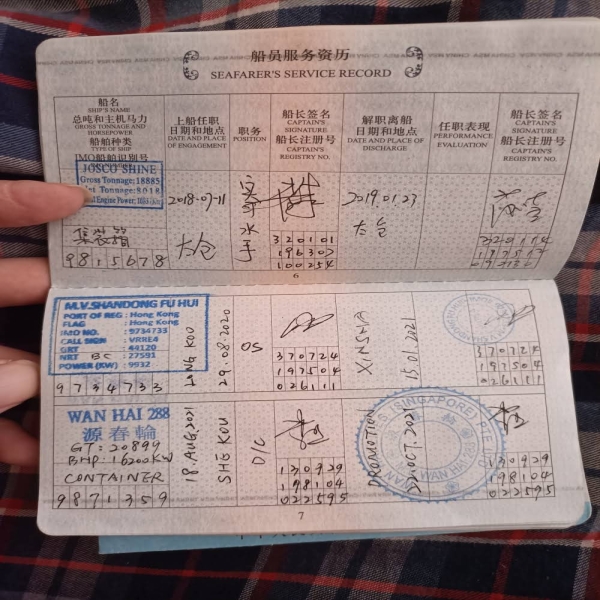 船员服务资历
SEAFARER'S SERVICE RECORD
船名
SHIP'S NAME
总吨和主机马力
GROSS TONNAGE AND
HORSEPOWER
船舶种类
TYPE OF SHIP
IMO船舶识别号
上船任职
日期和地点
DATE AND PLACE
OF ENGAGEMENT
职务
POSITION
船长签名
CAPTAIN'S
SIGNATURE
船长注册号
CAPTAIN'S
REGISTRY NO.
解职离船
日期和地点
DATE AND PLACE OF
DISCHARGE
任职表现
PERFORMANCE
EVALUATION
船长签名
CAPTAIN'S
SIGNATURE
船长注册号
CAPTAIN'S
REGISTRY NO.
JOSCO SHINE
Gross Tonnage: 18885
Tonnage: 8018
Engine Power:
集装箱
9815678
2018-07-11
太仓
水
手
320101
196307
100254
2019.01.23
太仓
6
M.V.SHANDONG FU HUI
PORT OF REG : Hong Kong
FLAG : Hong Kong
IMO NO. : 9734733
CALL SIGN : VRRE4
GRT : 44120
NRT BC : 27591
POWER(KW) : 9932
9734733
LONG KOU
29.08.2020
OS
370724
197504
026111
XINSHA
15.01.2021
370724
197504
026111
WAN HAI 288
源春輪
GT: 20899
BHP: 16200KW
CONTAINER
9871359
18 AUG, 2021
SHE KOU
D/C
130929
198104
022595
PROMOTION
22.OCT.2021
(SINGAPORE) PTE
WAN HAI
130929
198104
022595
7